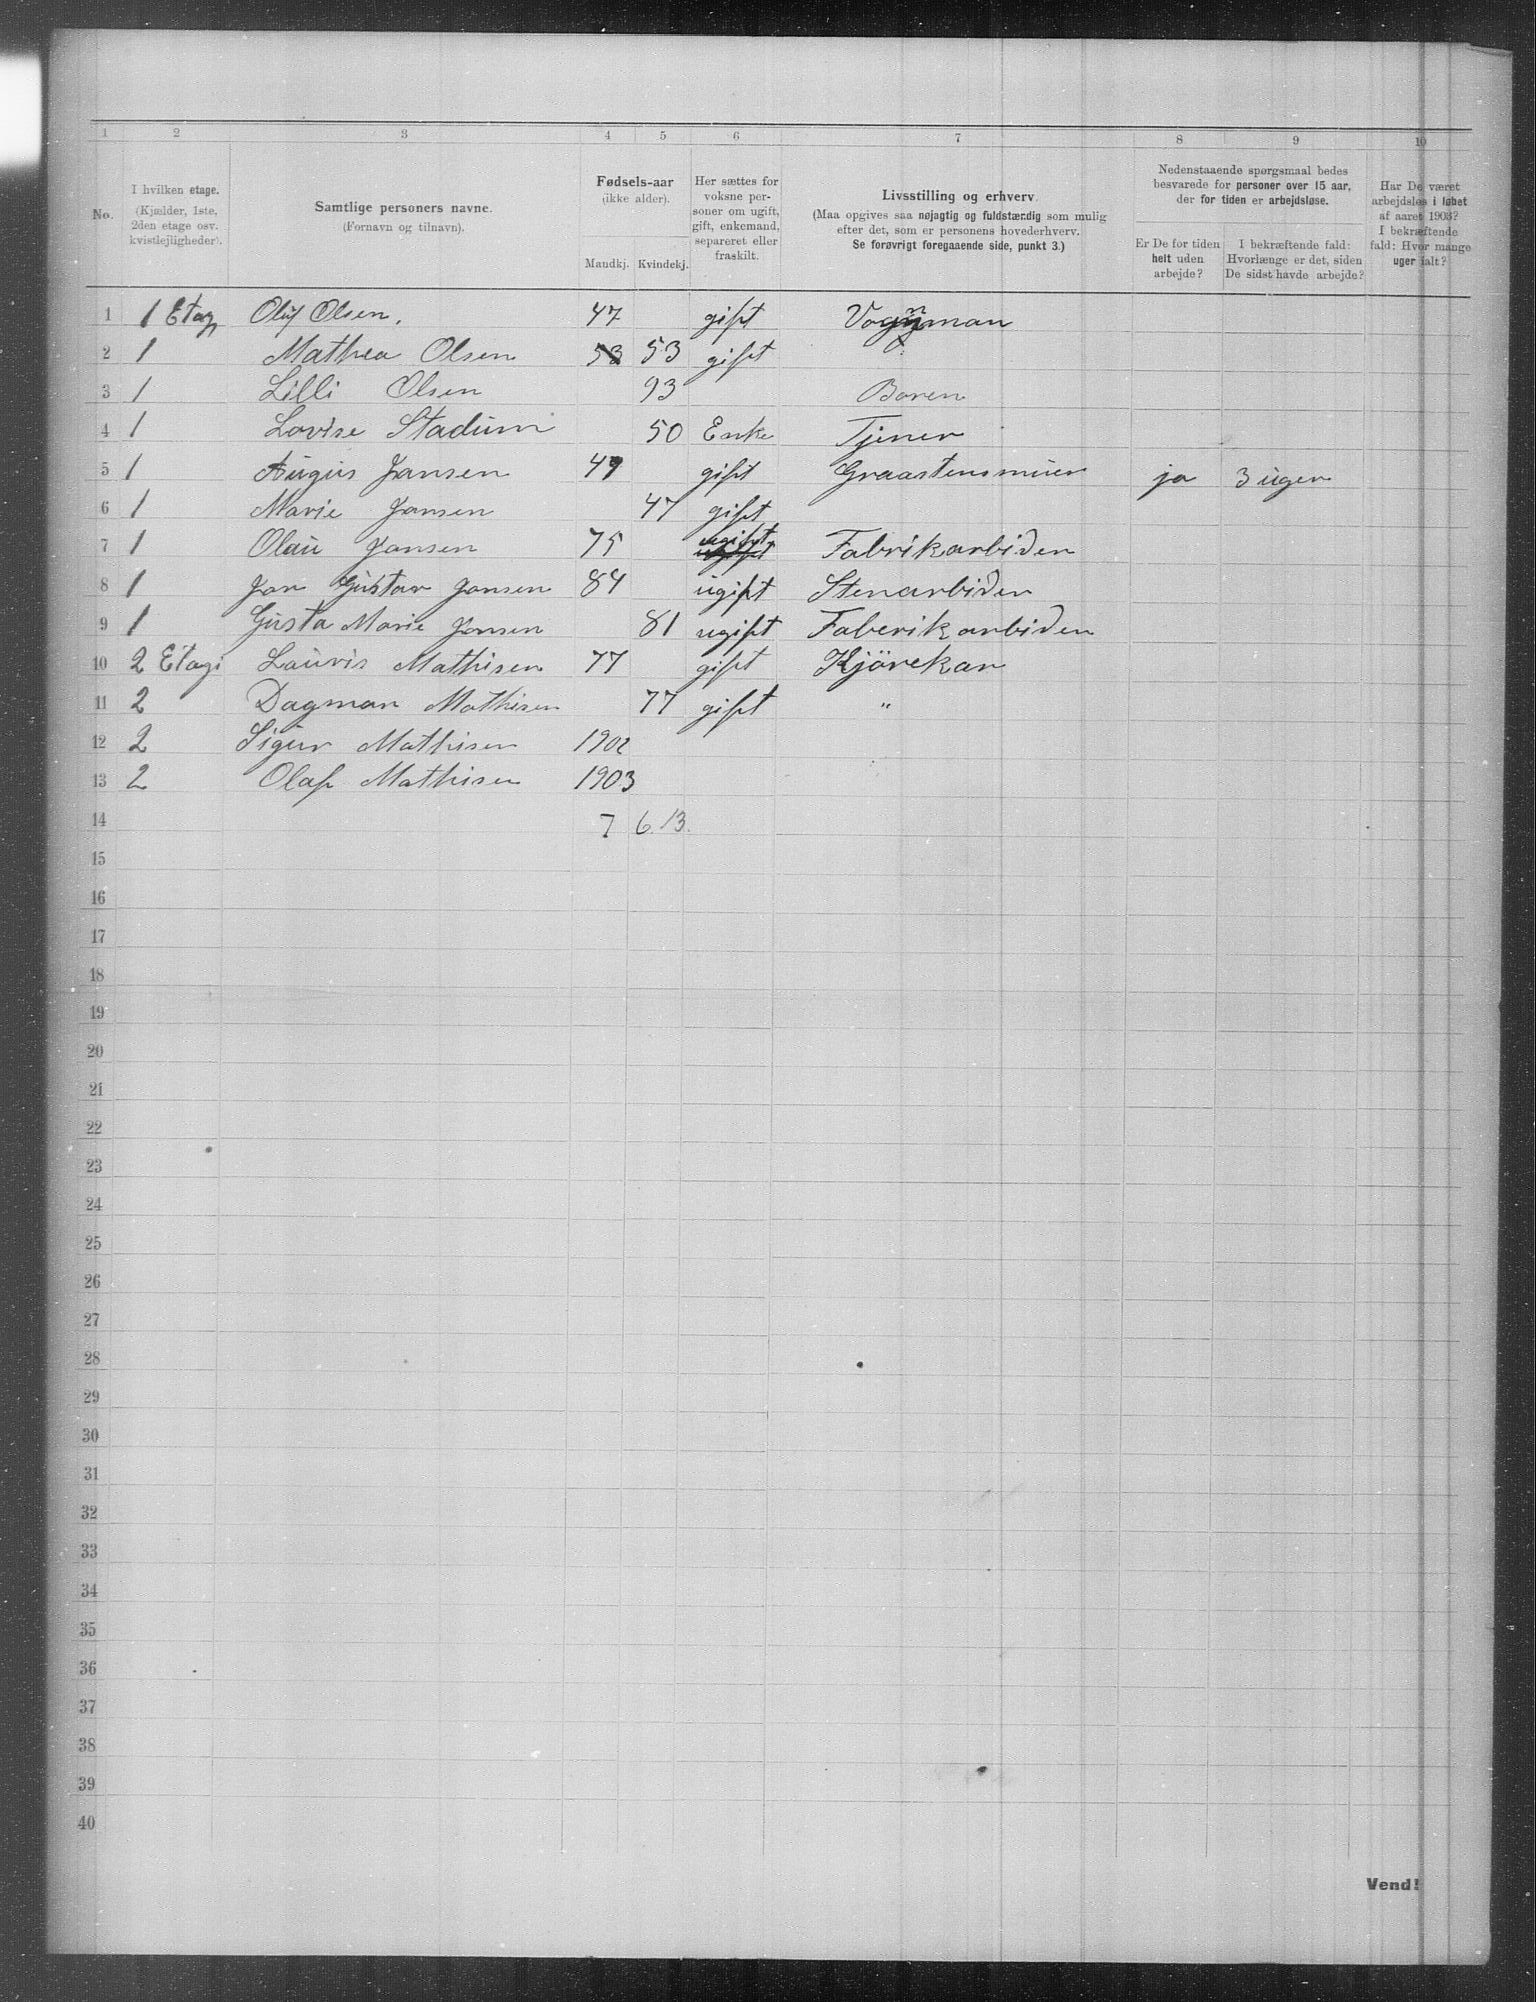 1 2 3 4 5 6 7 8 9 10
No. I hvilken etage. (Kjælder, 1ste, 2den etage osv. kvistlejligheder). Samtlige personers navne. (Fornavn og tilnavn). Fødsels-aar (ikke alder). Mandkj. Kvindekj. Her sættes for voksne personer om ugift, gift, enkemand, separeret eller fraskilt. Livsstilling og erhverv. (Maa opgives saa nøjagtig og fuldstændig som mulig efter det, som er personens hovederhverv. Se forøvrigt foregaaende side, punkt 3.) Nedenstaaende spørgsmaal bedes besvarede for personer over 15 aar, der for tiden er arbejdsløse. Er De for tiden helt uden arbejde? I bekræftende fald: Hvorlænge er det, siden De sidst havde arbejde? Har De været arbejdsløs i løbet af aaret 1903? I bekræftende fald: Hvor mange uger ialt?
1 1 Etag Oluf Olsen. 47 gift
2 1 Mathea Olsen 53 53 gift
3 1 Lilli Olsen 93 Baren
4 1 Lovise Stadum 50 Enke Tjener
5 1 Augus Jansen 47 gift Graastensmuer ja 3 uger
6 1 Marie Jansen 47 gift
7 1 Olau Jansen 75 ugift Fabrikarbiden
8 1 Jon Gustav Jansen 84 ugift Stenarbider
9 1 Gusta Marie Jansen 81 ugift Faberikarbiden
10 2 Etagi Lauris Mathisen 77 gift Kjörekar
11 2 Dagmar Mathisen 77 gift "
12 2 Sigur Mathisen 1902
13 2 Olaf Mathisen 1903
14 7 6. 13.
15
16
17
18
19
20
21
22
23
24
25
26
27
28
29
30
31
32
33
34
35
36
37
38
39
40
Vend!